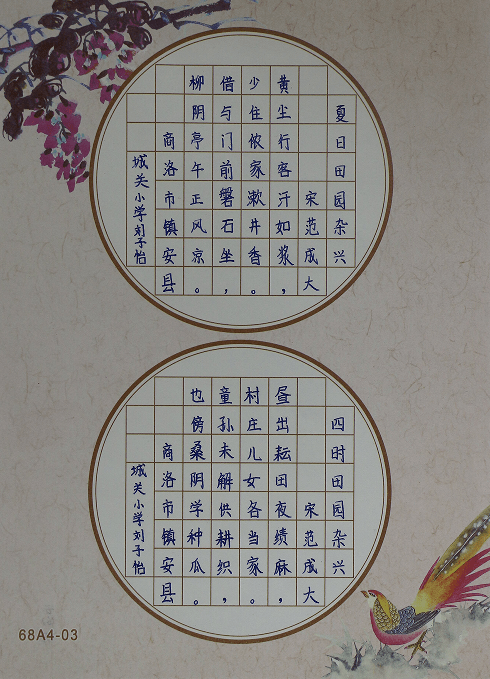 夏日田园杂兴
宋 范成大
黄尘行客汗如浆，
少住侬家漱井香。
借与门前磐石坐，
柳阴亭午正风凉。
商洛市镇安县
城关小学刘子怡
四时田园杂兴
宋 范成大
昼出耘田夜绩麻，
村庄儿女各当家。
童孙未解供耕织，
也傍桑阴学种瓜。
商洛市镇安县
城关小学刘子怡
68A4-03